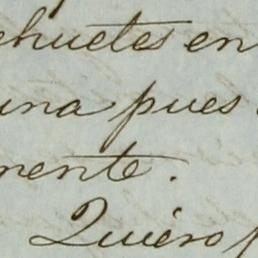 ehuetes en
una pues
mente.
Quiero p